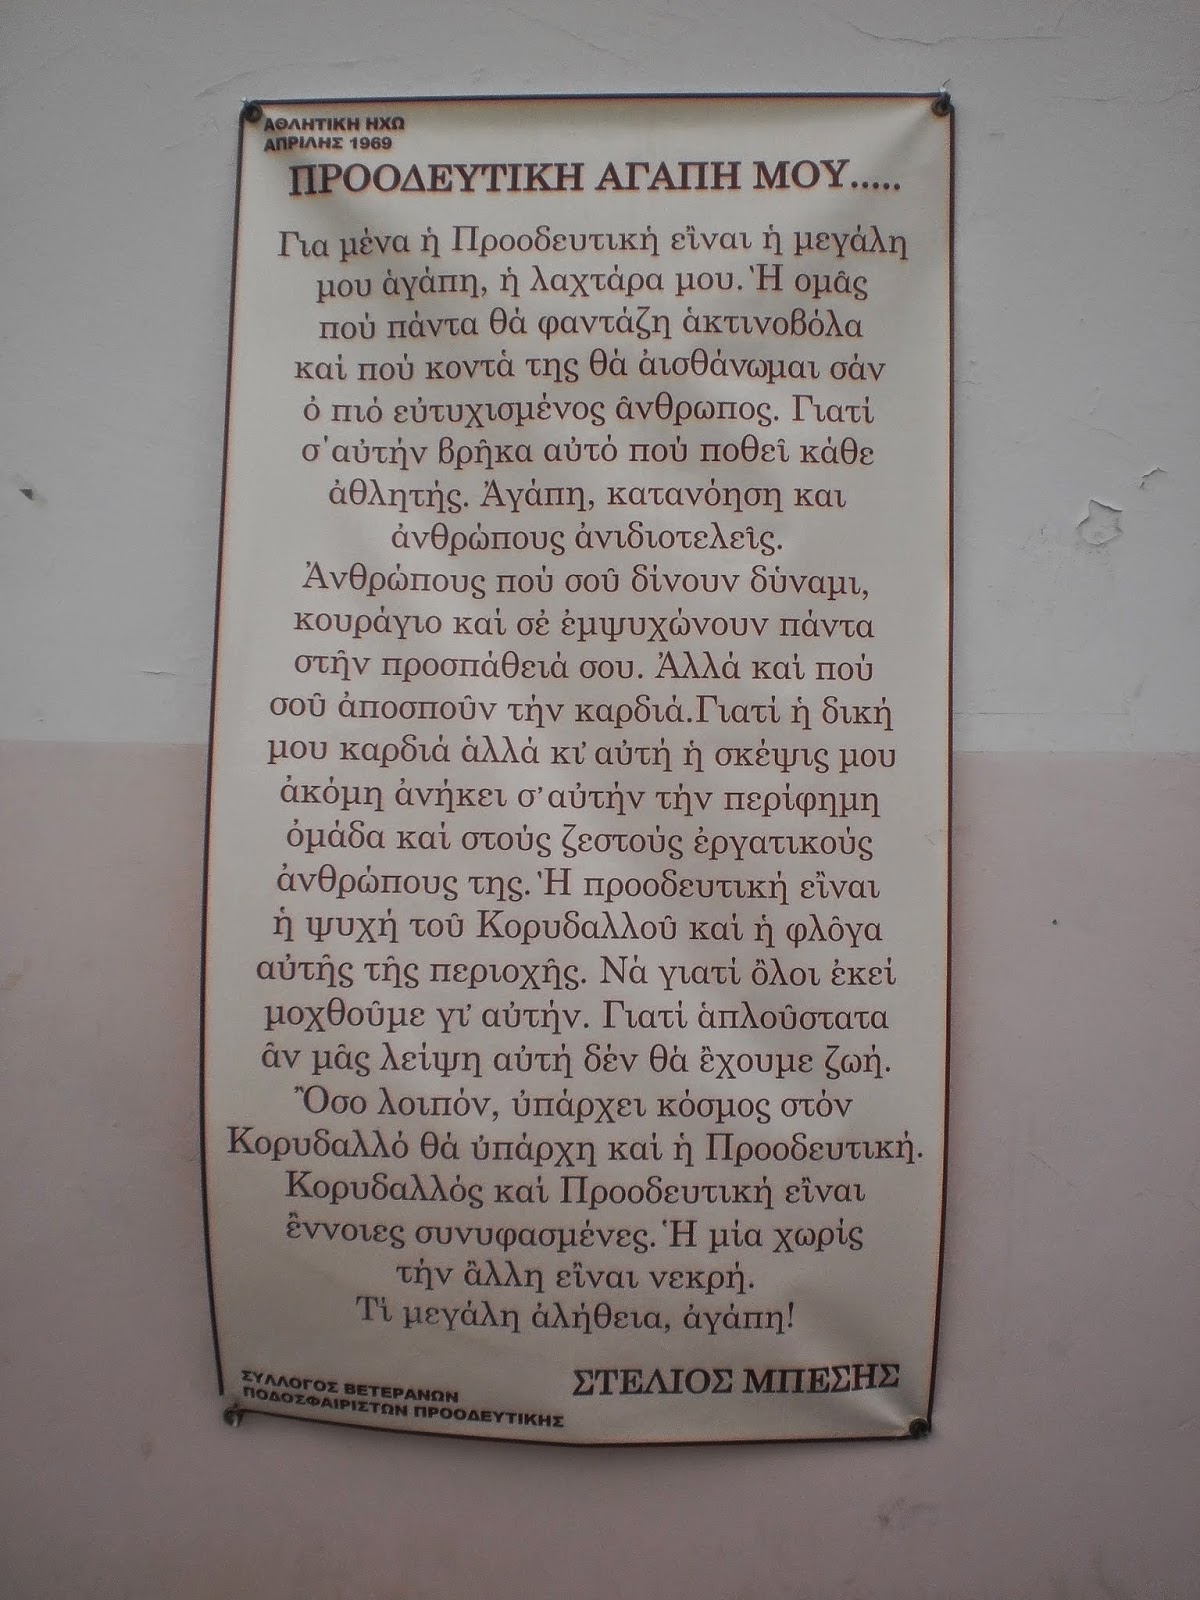 ΑΘΛΗΤΙΚΗ ΗΧΩ
ΑΠΡΙΛΗΣ 1969
ΠΡΟΟΔΕΥΤΙΚΗ ΑΓΑΠΗ ΜΟΥ.....
Για μένα ἡ Προοδευτική εἶναι ἡ μεγάλη
μου ἀγάπη, ἡ λαχτάρα μου. Ἡ ομᾶς
πού πάντα θά φαντάζη ἀκτινοβόλα
καί πού κοντά της θά ἀισθάνωμαι σάν
ὁ πιό εὐτυχισμένος ἄνθρωπος. Γιατί
σ'αὐτήν βρῆκα αὐτό πού ποθεῖ κάθε
ἀθλητής. Ἀγάπη, κατανόηση και
ἀνθρώπους ἀνιδιοτελεῖς.
Ἀνθρώπους πού σοῦ δίνουν δύναμι,
κουράγιο καί σέ ἐμψυχώνουν πάντα
στῆν προσπάθειά σου. Ἀλλά καί πού
σοῦ ἀποσποῦν τήν καρδιά.Γιατί ἡ δική
μου καρδιά ἀλλά κι' αὐτή ἡ σκέψις μου
ἀκόμη ἀνήκει σ' αὐτήν τήν περίφημη
ὁμάδα καί στούς ζεστούς ἐργατικούς
ἀνθρώπους της. Ἡ προοδευτική εἶναι
ἡ ψυχή τοῦ Κορυδαλλοῦ καί ἡ φλόγα
αὐτῆς τῆς περιοχῆς. Νά γιατί ὅλοι ἐκεί
μοχθοῦμε γι' αὐτήν. Γιατί ἁπλοῦστατα
ἄν μᾶς λείψη αὐτή δέν θά ἔχουμε ζωή.
Ὅσο λοιπόν, ὑπάρχει κόσμος στόν
Κορυδαλλό θά ὑπάρχη καί ἡ Προοδευτική.
Κορυδαλλός καί Προοδευτική εἶναι
ἔννοιες συνυφασμένες. Ἡ μία χωρίς
τήν ἄλλη εἶναι νεκρή.
Τί μεγάλη ἀλήθεια, ἀγάπη!
ΣΤΕΛΙΟΣ ΜΠΕΣΗΣ
ΣΥΛΛΟΓΟΣ ΒΕΤΕΡΑΝΩΝ
ΠΟΔΟΣΦΑΙΡΙΣΤΩΝ ΠΡΟΟΔΕΥΤΙΚΗΣ